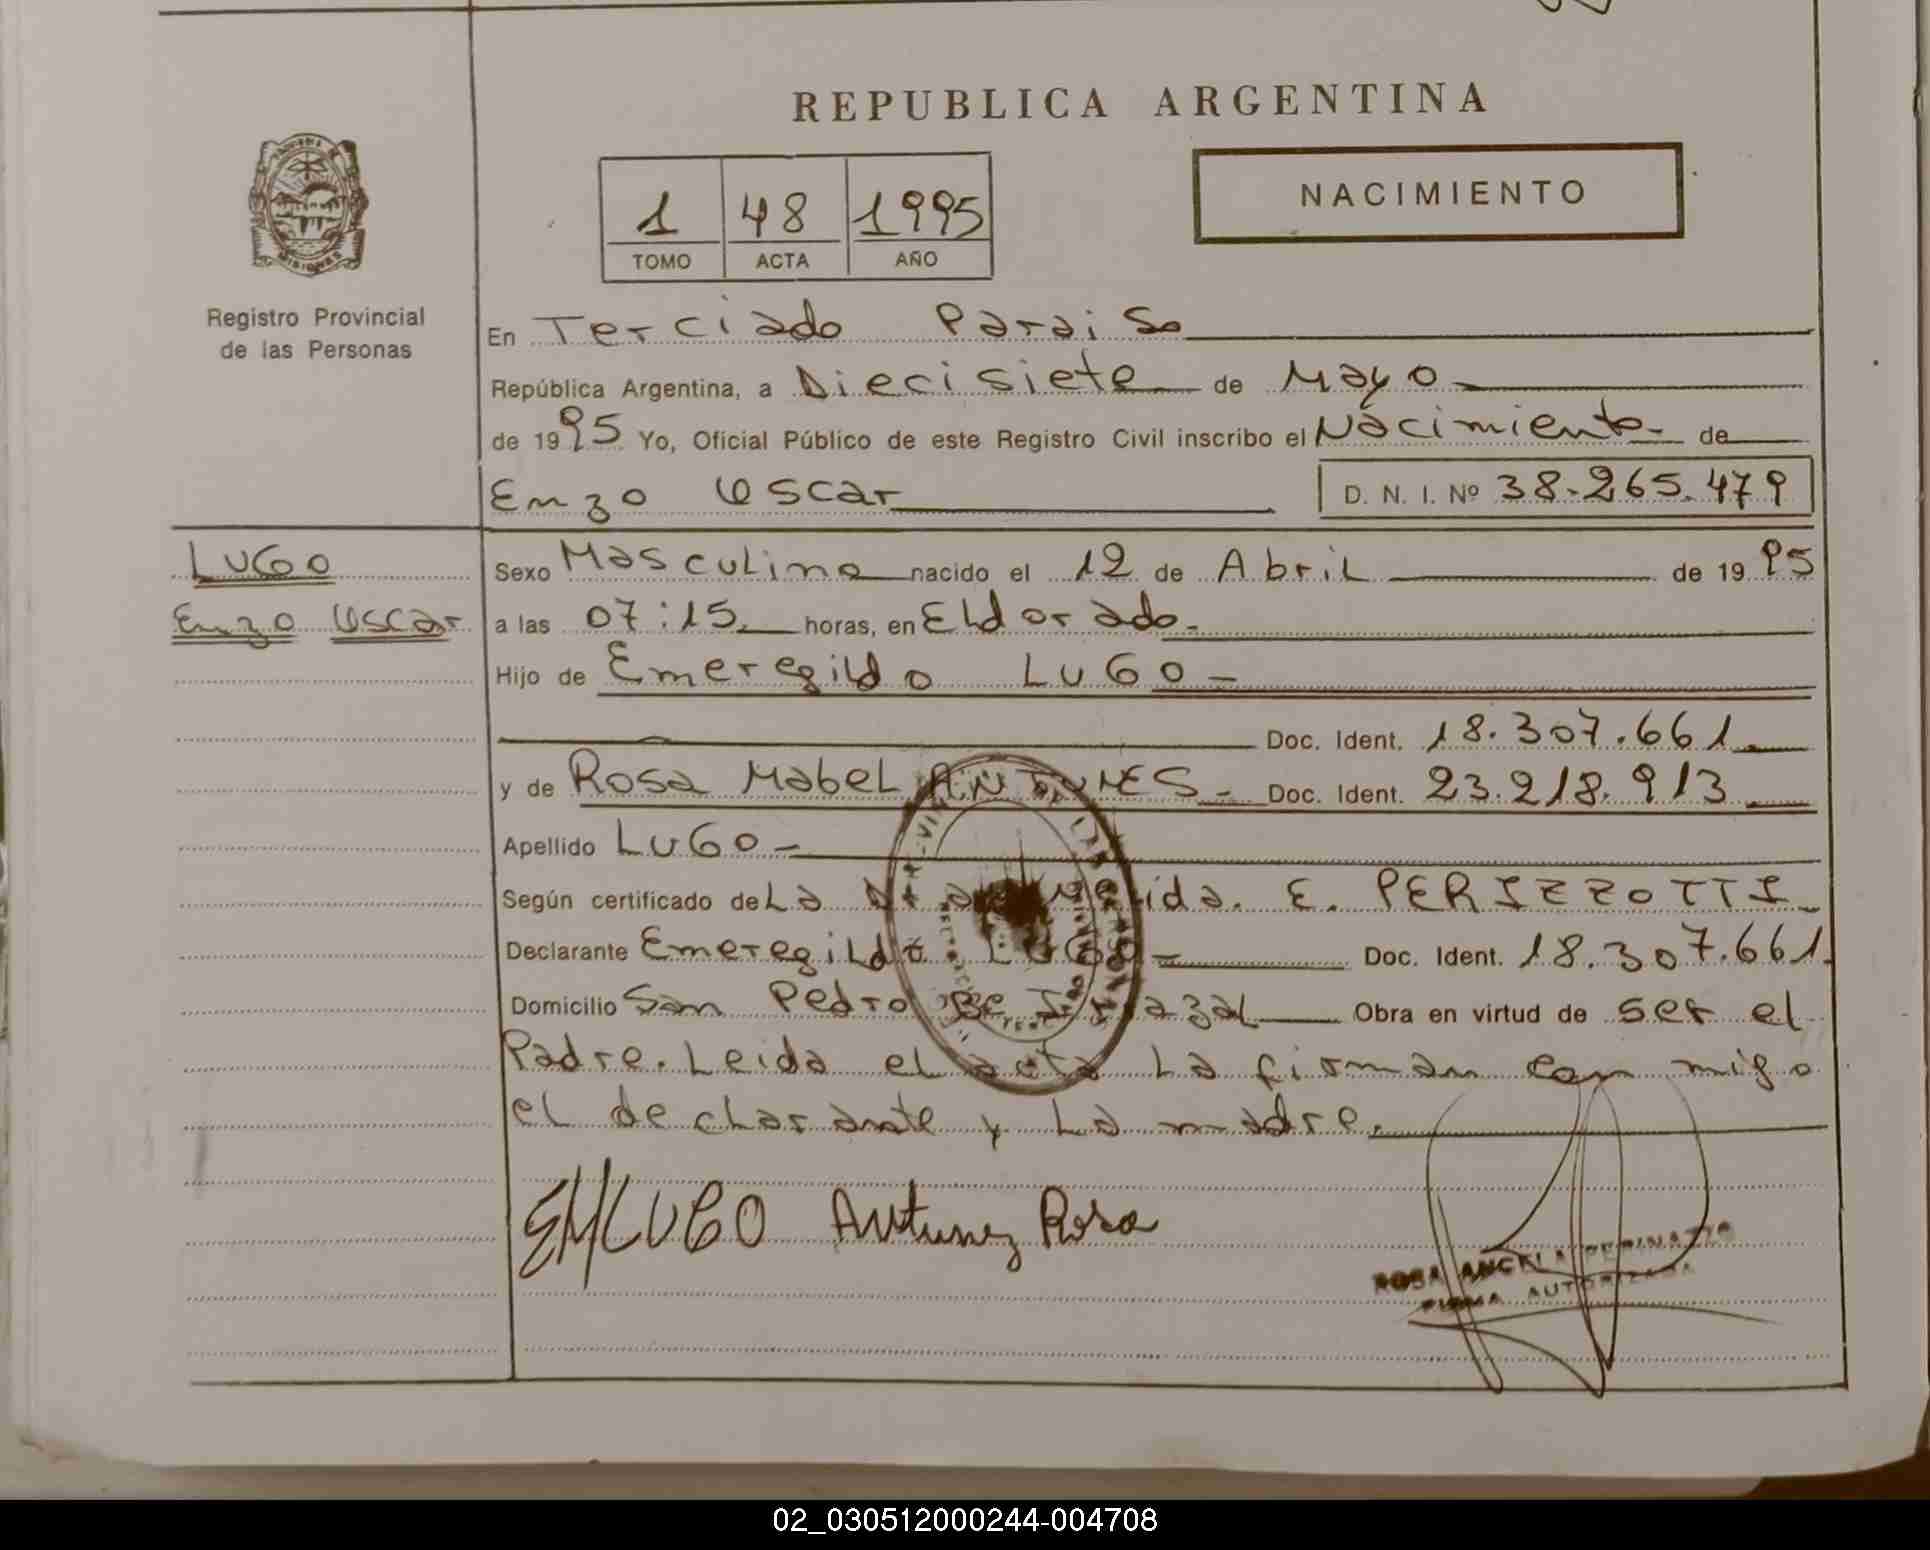 REPUBLICA ARGENTINA
NACIMIENTO
1 48 1995
TOMO ACTA AÑO
MISIONES
Registro Provincial
de las Personas
En Terciado Paraiso
República Argentina, a Diecisiete de Mayo
de 1995 Yo, Oficial Público de este Registro Civil inscribo el Nacimiento de
Enzo Oscar D. N. I. Nº 38.265.479
LUGO
Enzo Oscar
Sexo Masculino nacido el 12 de Abril de 1995
a las 07:15 horas, en Eldorado
Hijo de Emeregildo LUGO
Doc. Ident. 18.307.661
y de Rosa Mabel ANTUNES Doc. Ident. 23.218.913
Apellido LUGO
Según certificado de La E. PERIZZOTTI
Declarante Emeregildo LUGO Doc. Ident. 18.307.661
Domicilio San Pedro Obra en virtud de ser el
Padre. Leida el acta La firman con migo
el declarante y La madre.
EM LUGO Antunez Rosa
ROSA ANGELA
FIRMA AUTORIZADA
02_030512000244-004708